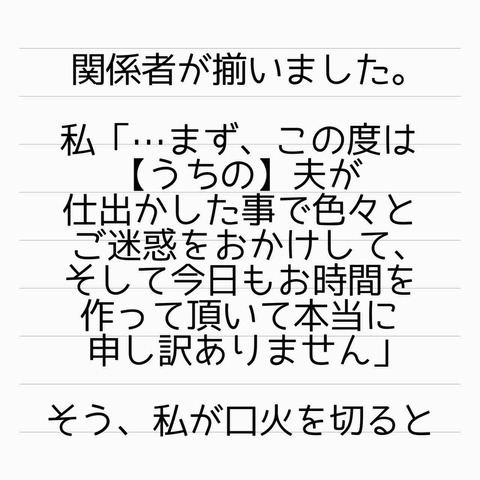 関係者が揃いました。
私「…まず、この度は
【うちの】夫が
仕出かした事で色々と
ご迷惑をおかけして、
そして今日もお時間を
作って頂いて本当に
申し訳ありません」
そう、私が口火を切ると